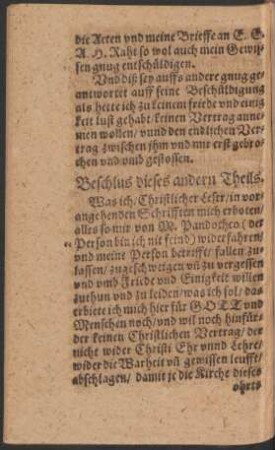 die Acten vnd meine Brieffe an E. E.
A. H. Raht so wol auch mein Gewis-
sen gnug entschüldigen.
Vnd diß sey auffs andere gnug ge-
antwortet auff seine Beschüldigung
als hette ich zu keinem friede vnd einig
keit lust gehabt / keinen Vertrag anne-
men wollen / vnnd den endlichen Ver-
trag zwischen jhm vnd mir erst gebro-
chen vnd vmb gestossen.
Beschlus dieses andern Theils.
Was ich / Christlicher Leser / in vor-
angehenden Schrifften mich erboten /
alles so mir von M. Pandocheo (der
Person bin ich nit feind) widerfahren /
vnd meine Person betrifft / fallen zu-
lassen / zugeschweigen vñ zu vergessen
vnd vmb Friede vnd Einigkeit willen
zuthun vnd zu leiden / was ich sol / das
erbiete ich mich hier für GOTT vnd
Menschen noch / vnd wil noch hinfür-
der keinen Christlichen Vertrag / der
nicht wider Christi Ehr vnnd Lehre /
wider die Warheit vñ gewissen leufft /
abschlagen / damit je die Kirche dieses
ohrts